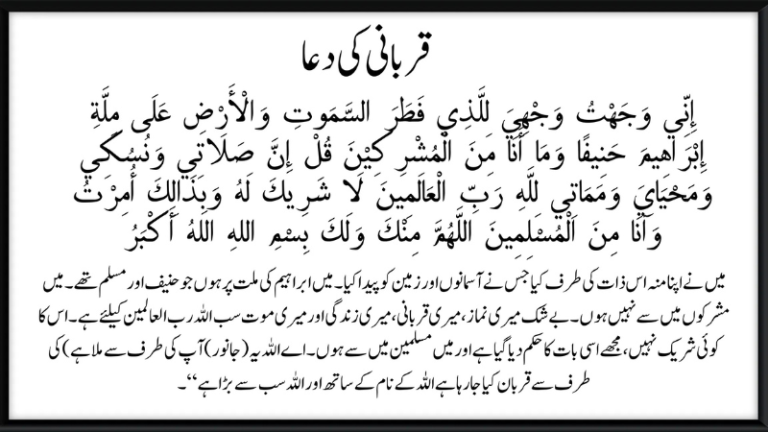 قربانی کی دعا
إِنِّي وَجَهْتُ وَجْهِيَ لِلَّذِي فَطَرَ السَّمَوتِ وَالْأَرْضِ عَلَى مِلَّةِ
إِبْرَاهِيمَ حَنِيفًا وَمَا أَنَا مِنَ الْمُشْرِكِيْنَ قُلْ إِنَّ صَلَاتِي وَنُسُكَي
وَمَحْيَايَ وَمَمَاتِي لِلَّهِ رَبِّ الْعَالَمِينَ لَا شَرِيكَ لَهُ وَبِذَالِكَ أُمِرْتُ
وَآنَا مِنَ الْمُسْلِمِينَ اللَّهُمَّ مِنْكَ وَلَكَ بِسْمِ اللهِ اللهُ أَكْبَرُ
میں نے اپنا منہ اس ذات کی طرف کیا جس نے آسمانوں اور زمین کو پیدا کیا۔ میں ابراہیم کی ملت پر ہوں جو حنیف اور مسلم تھے۔ میں
مشرکوں میں سے نہیں ہوں۔ بے شک میری نماز، میری قربانی، میری زندگی اور میری موت سب اللہ رب العالمین کیلئے ہے۔ اس کا
کوئی شریک نہیں، مجھے اسی بات کا حکم دیا گیا ہے اور میں مسلمین میں سے ہوں۔ اے اللہ یہ (جانور) آپ کی طرف سے ملا ہے) کی
طرف سے قربان کیا جارہا ہے اللہ کے نام کے ساتھ اور اللہ سب سے بڑا ہے“۔